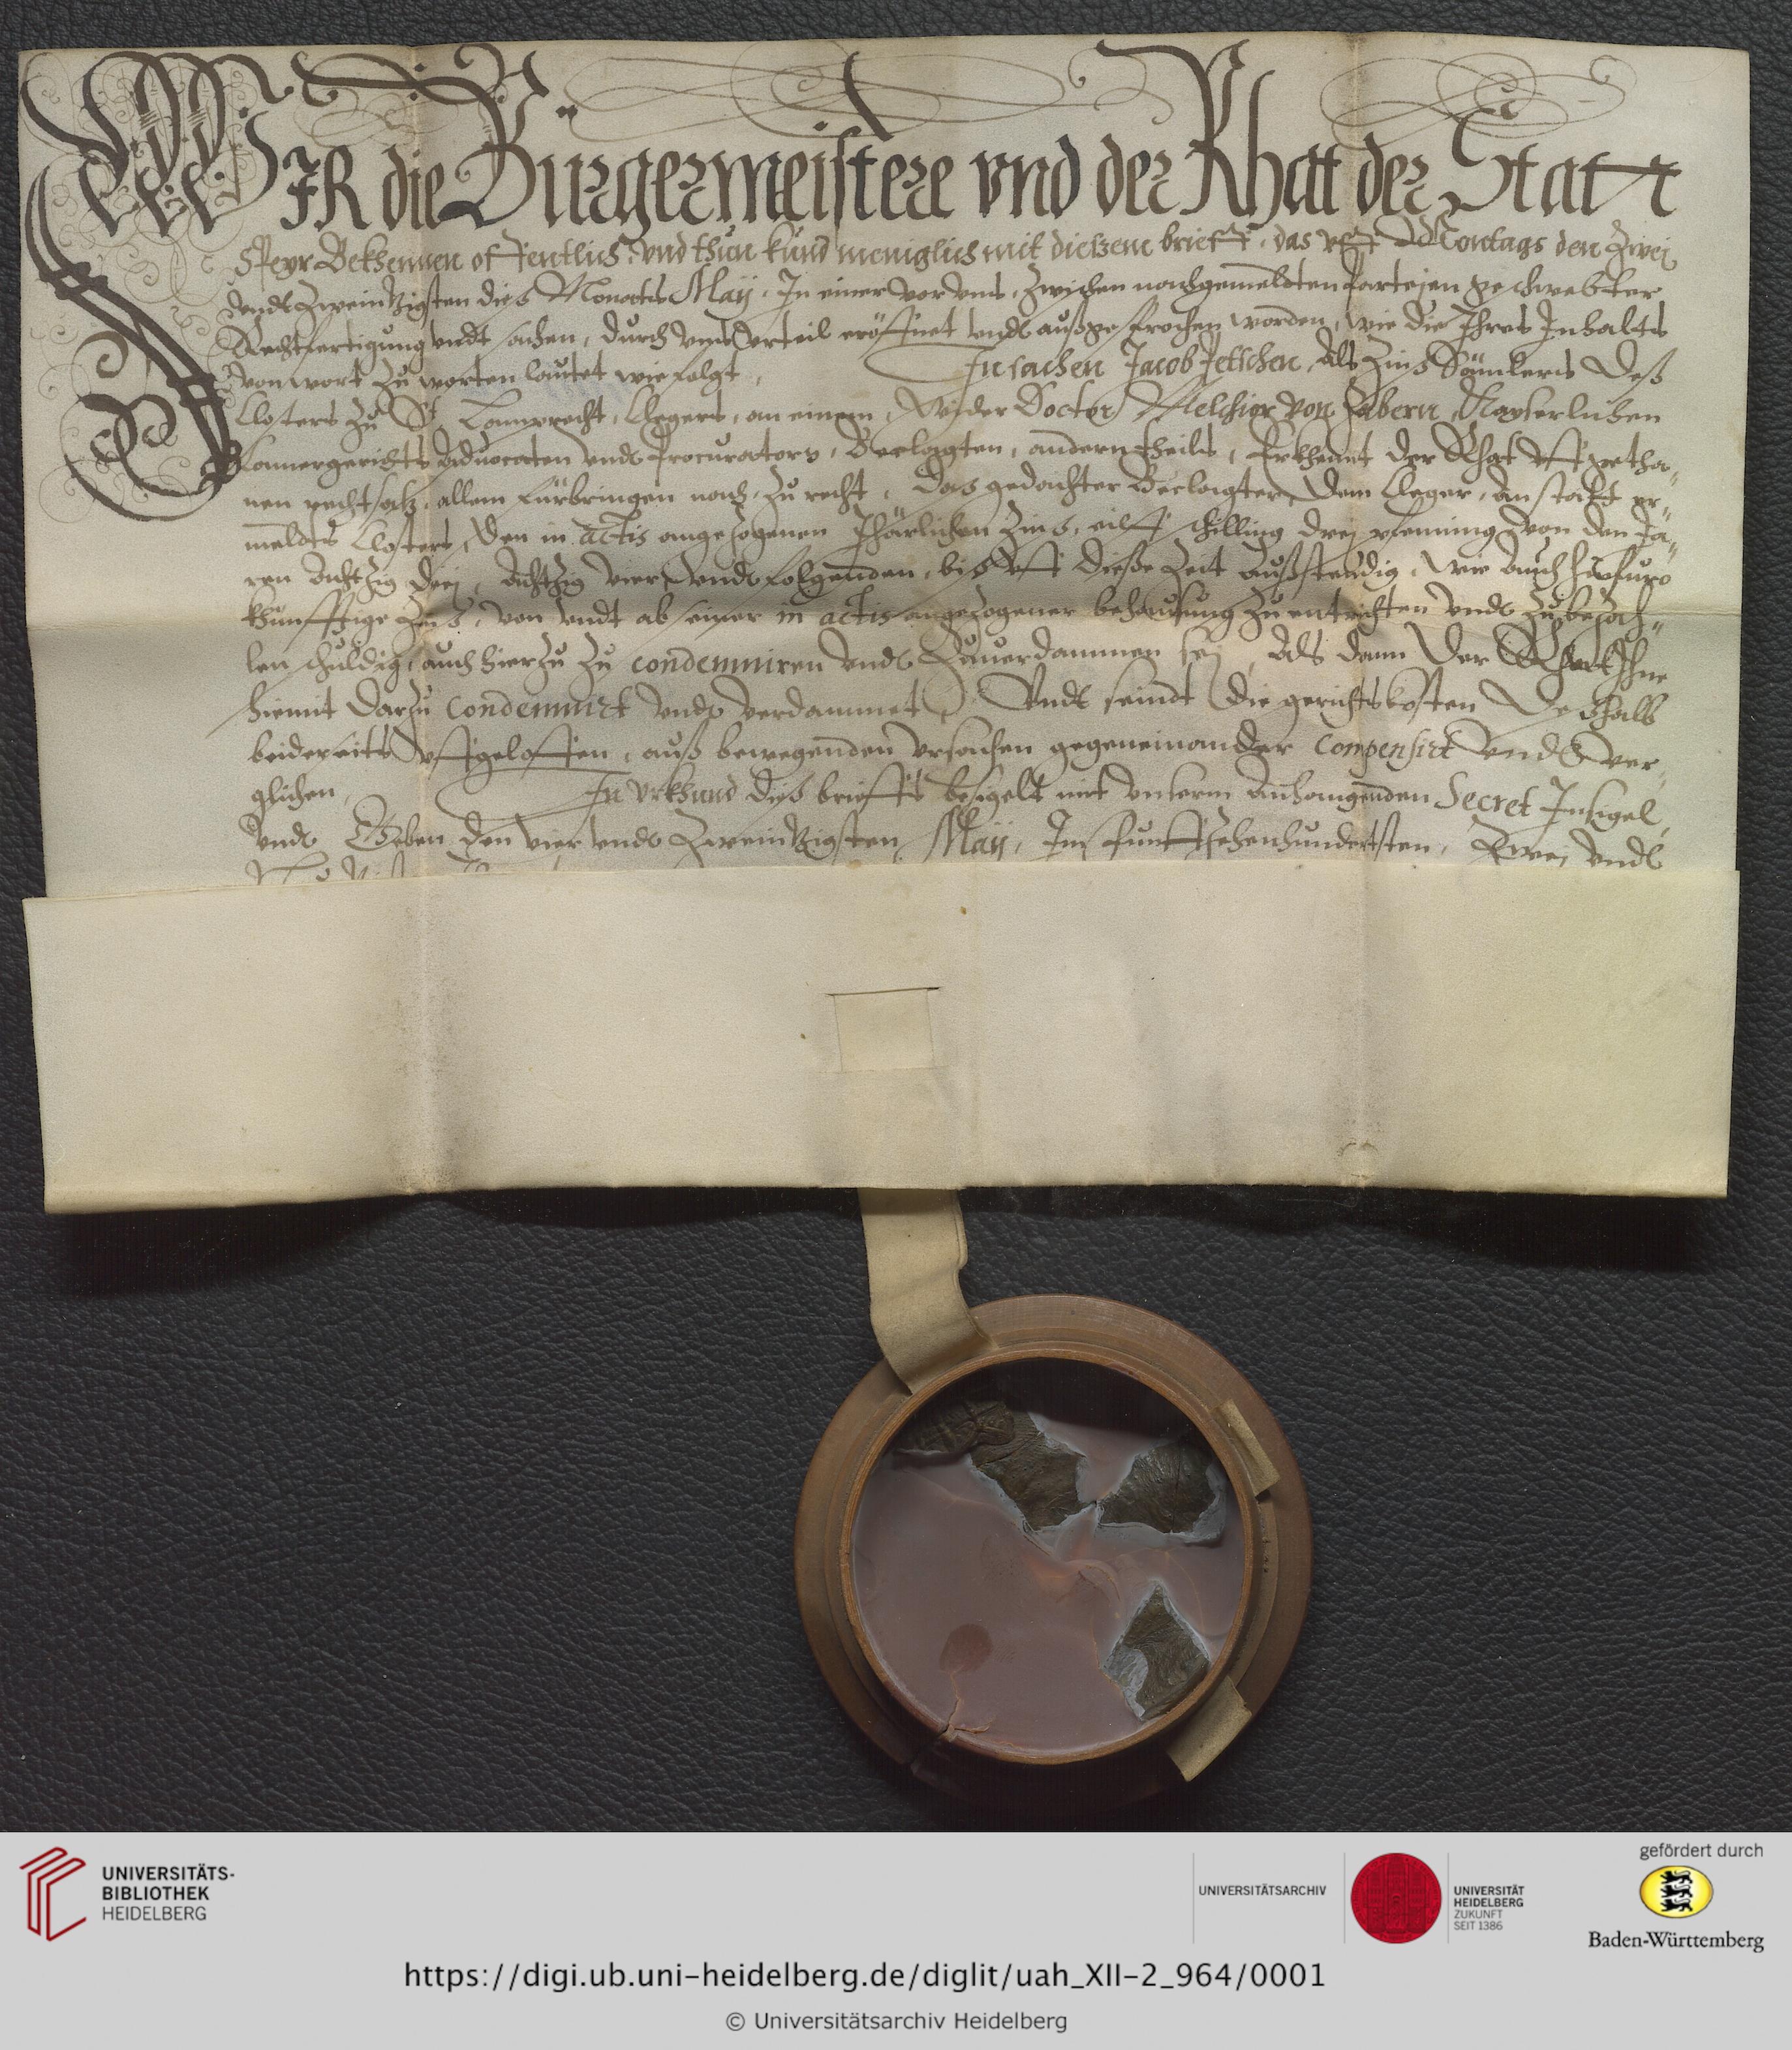 WIR die Bürgermeistere vnd der Rhatt der Statt
Speyr Bekhennen offentlich vnd thun kund meniglich mit dießem brieff, das vff Montags den Zwei
vndt Zweintzigsten dies Monats Maij, In einer vor vns, zwischen nachgemeldten Parteien geschwebter
Rechtfertigung vndt sachen, durch vns Vrteil eröffnet vndt außgesprochen worden, wie die Ihres Inhalts
von wort zu worten lautet wie folgt, In sachen Jacob Jetschen, Als Zins Samlers Deß
Closters zu St. Lamprecht, Clegers, an einem, Wider Doctor Melchior von Zabern, Kayserlichen
Camergerichts Aduocaten vndt Procuratorn, Beclagten, andern theils, Erkhennt Der Rhat vff getha-
nen rechtsatz, allem fürbringen nach, zu recht, Das gedachter Beclagter, Dem Cleger, An statt er-
meldts Closters, Den in Actis angezogenen Jhärlichen Zins, eilff schilling drei pfenning, von den Ja-
ren Achtzig Drei, Achtzig vier vndt folgenden, bis vff dieße Zeit außstendig, wie Auch hinfuro
khunfftige Zins, von vndt ab seiner in actis angezogener behausung zu entrichten vndt zu bezah-
len schuldig, auch hierzu zu condemniren vndt Zuuerdammen sei, Als dann Der Rhatt Ihne
hiemit Darzu Condemnirt vndt verdammet, Vndt seindt Die gerichtskosten Deßhalb
beiderseits vffgeloffen, auß bewegenden vrsachen gegeneinander Compensirt vndt ver-
glichen, In Vrkhund dies brieffs besigelt mit vnserm Anhangenden Secret Insigel,
vndt Geben den vier vndt Zweintzigsten Maij, Im funffzehenhundertsten, Zwei vndt
UNIVERSITÄTS-
BIBLIOTHEK
HEIDELBERG
UNIVERSITÄTSARCHIV
UNIVERSITÄT
HEIDELBERG
ZUKUNFT
SEIT 1386
gefördert durch
Baden-Württemberg
https://digi.ub.uni-heidelberg.de/diglit/uah_XII-2_964/0001
© Universitätsarchiv Heidelberg